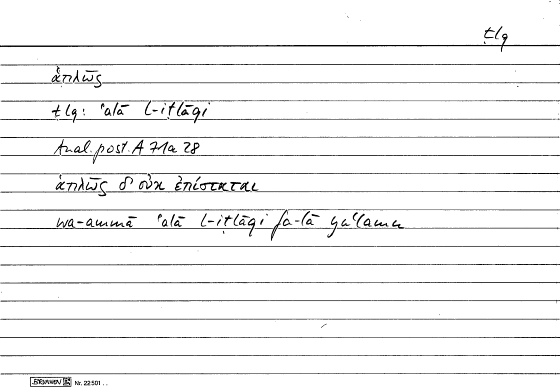 ṭlq
ἁπλῶς
ṭlq: ʿalā l-iṭlāqi
Anal. post. A 71a 28
ἁπλῶς δ' οὐκ ἐπίσταται
wa-ammā ʿalā l-iṭlāqi fa-lā yaʿlamu
BRUNNEN Nr. 22501